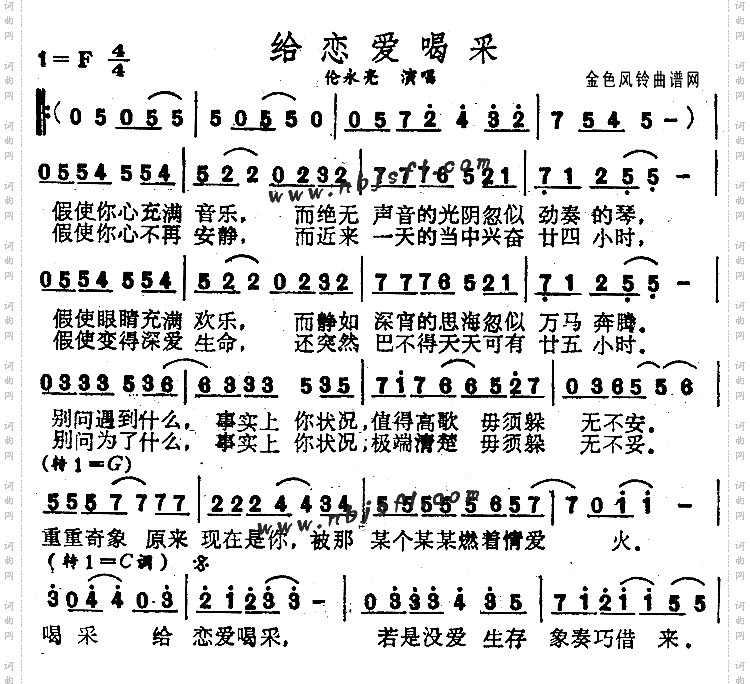 给恋爱喝采
1=F 4/4
伦永亮 演唱
金色风铃曲谱网
(05055 | 50550 | 0572 4 32 | 7 54 5 -)
0554 554 | 522 0232 | 7776 521 | 71 255 -
www.nbjsft.com
假使你心充满 音乐， 而绝无 声音的光阴忽似 劲奏 的琴，
假使你心不再 安静， 而近来 一天的当中兴奋 廿四 小时，
0554 554 | 522 0232 | 7776 521 | 71 255 -
假使眼睛充满 欢乐， 而静如 深宵的思海忽似 万马 奔腾。
假使变得深爱 生命， 还突然 巴不得天天可有 廿五 小时．
0333 536 | 6333 535 | 7176 6527 | 0365 56
别问遇到什么， 事实上 你状况，值得高歌 毋须躲 无不安．
别问为了什么， 事实上 你状况；极端清楚 毋须躲 无不妥．
(转1=G)
5557 777 | 2224 434 | 5555 5657 | 7011 -
www.nbjsft.com
重重奇象 原来 现在是你，被那 某个某某燃着情爱 火．
(转1=C调) 𝄋
3044 03 | 21233 - | 0333 43 | 7121155
喝采 给 恋爱喝采， 若是没爱 生存 象奏巧借 来．
词曲网